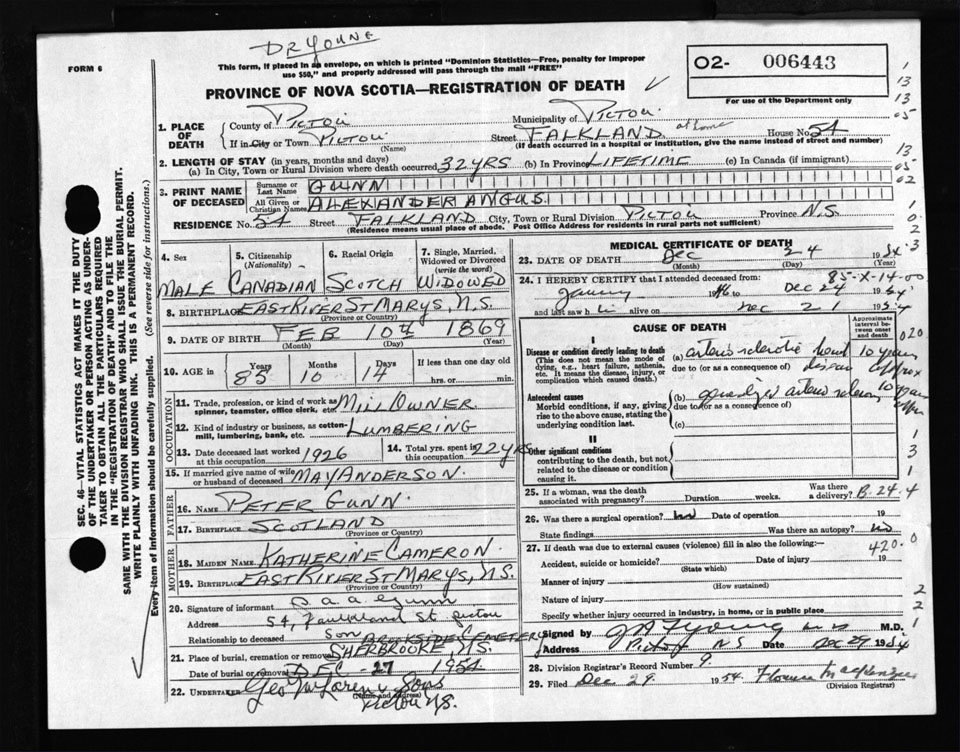 DR YOUNG
FORM 6
This form, if placed in an envelope, on which is printed "Dominion Statistics—Free, penalty for improper
use $50," and properly addressed will pass through the mail "FREE"
O2- 006443
For use of the Department only
PROVINCE OF NOVA SCOTIA—REGISTRATION OF DEATH
1. PLACE OF DEATH
County of PICTOU Municipality of PICTOU
If in City or Town PICTOU (Name) Street FALKLAND at home House No. 54
(If death occurred in a hospital or institution, give the name instead of street and number)
2. LENGTH OF STAY (in years, months and days)
(a) In City, Town or Rural Division where death occurred 32 YRS (b) In Province LIFETIME (c) In Canada (if immigrant)
3. PRINT NAME OF DECEASED
Surname or Last Name GUNN
All Given or Christian Names ALEXANDER ANGUS.
RESIDENCE No. 54 Street FALKLAND City, Town or Rural Division PICTOU Province N.S.
(Residence means usual place of abode. Post Office Address for residents in rural parts not sufficient)
4. Sex MALE
5. Citizenship (Nationality) CANADIAN
6. Racial Origin SCOTCH
7. Single, Married, Widowed or Divorced (write the word) WIDOWED
8. BIRTHPLACE EAST RIVER ST MARYS, N.S.
(Province or Country)
9. DATE OF BIRTH FEB 10TH 1869
(Month) (Day) (Year)
10. AGE in Years 85 Months 10 Days 14 If less than one day hrs. or min.
OCCUPATION
11. Trade, profession, or kind of work as spinner, teamster, office clerk, etc. MILL OWNER
12. Kind of industry or business, as cotton-mill, lumbering, bank, etc. LUMBERING
13. Date deceased last worked at this occupation 1926
14. Total yrs. spent in this occupation 22 YRS
15. If married give name of wife or husband of deceased MAY ANDERSON
FATHER
16. Name PETER GUNN
17. Birthplace SCOTLAND
(Province or Country)
MOTHER
18. MAIDEN NAME KATHERINE CAMERON.
19. BIRTHPLACE EAST RIVER ST MARYS, N.S.
(Province or Country)
20. Signature of informant a a Gunn
Address 54, Faulkland St Pictou
Relationship to deceased Son
21. Place of burial, cremation or removal BROOKSIDE CEMETERY SHERBROOKE, N.S.
Date of burial or removal DEC 27 1954
22. UNDERTAKER Sons
(Name and address)
Pictou N.S.
MEDICAL CERTIFICATE OF DEATH
23. DATE OF DEATH Dec 24 1954
(Month) (Day) (Year)
85-X-14-00
24. I HEREBY CERTIFY that I attended deceased from:
1946 to Dec 24 1954
and last saw h alive on Dec 21 1954
CAUSE OF DEATH
Approximate interval between onset and death
I
Disease or condition directly leading to death (This does not mean the mode of dying, e.g., heart failure, asthenia, etc. It means the disease, injury, or complication which caused death.)
(a) arterio sclerotic heart disease 10 years approx
due to (or as a consequence of)
Antecedent causes
Morbid conditions, if any, giving rise to the above cause, stating the underlying condition last.
(b) generalized arterio sclerosis 10 years
due to (or as a consequence of)
(c)
II
Other significant conditions contributing to the death, but not related to the disease or condition causing it.
25. If a woman, was the death associated with pregnancy? Duration weeks. Was there a delivery?
B-24-4
26. Was there a surgical operation? no Date of operation 19
State findings Was there an autopsy? no
27. If death was due to external causes (violence) fill in also the following:—
420.0
Accident, suicide or homicide? (State which) Date of injury 19
Manner of injury
(How sustained)
Nature of injury
Specify whether injury occurred in industry, in home, or in public place
Signed by Young M.D.
Address Pictou N S Date Dec 29 1954
28. Division Registrar's Record Number 9.
29. Filed Dec 29 1954 MacKenzie
(Division Registrar)
SEC. 46—VITAL STATISTICS ACT MAKES IT THE DUTY
OF THE UNDERTAKER OR PERSON ACTING AS UNDER-
TAKER TO OBTAIN ALL THE PARTICULARS REQUIRED
IN THE "REGISTRATION OF DEATH" AND TO FILE THE
SAME WITH THE DIVISION REGISTRAR WHO SHALL ISSUE THE BURIAL PERMIT.
WRITE PLAINLY WITH UNFADING INK. THIS IS A PERMANENT RECORD.
Every item of information should be carefully supplied. (See reverse side for instructions.)
1
13
13
05
13
05
02
1
0
2
3
020
1
3
1
2
2
1